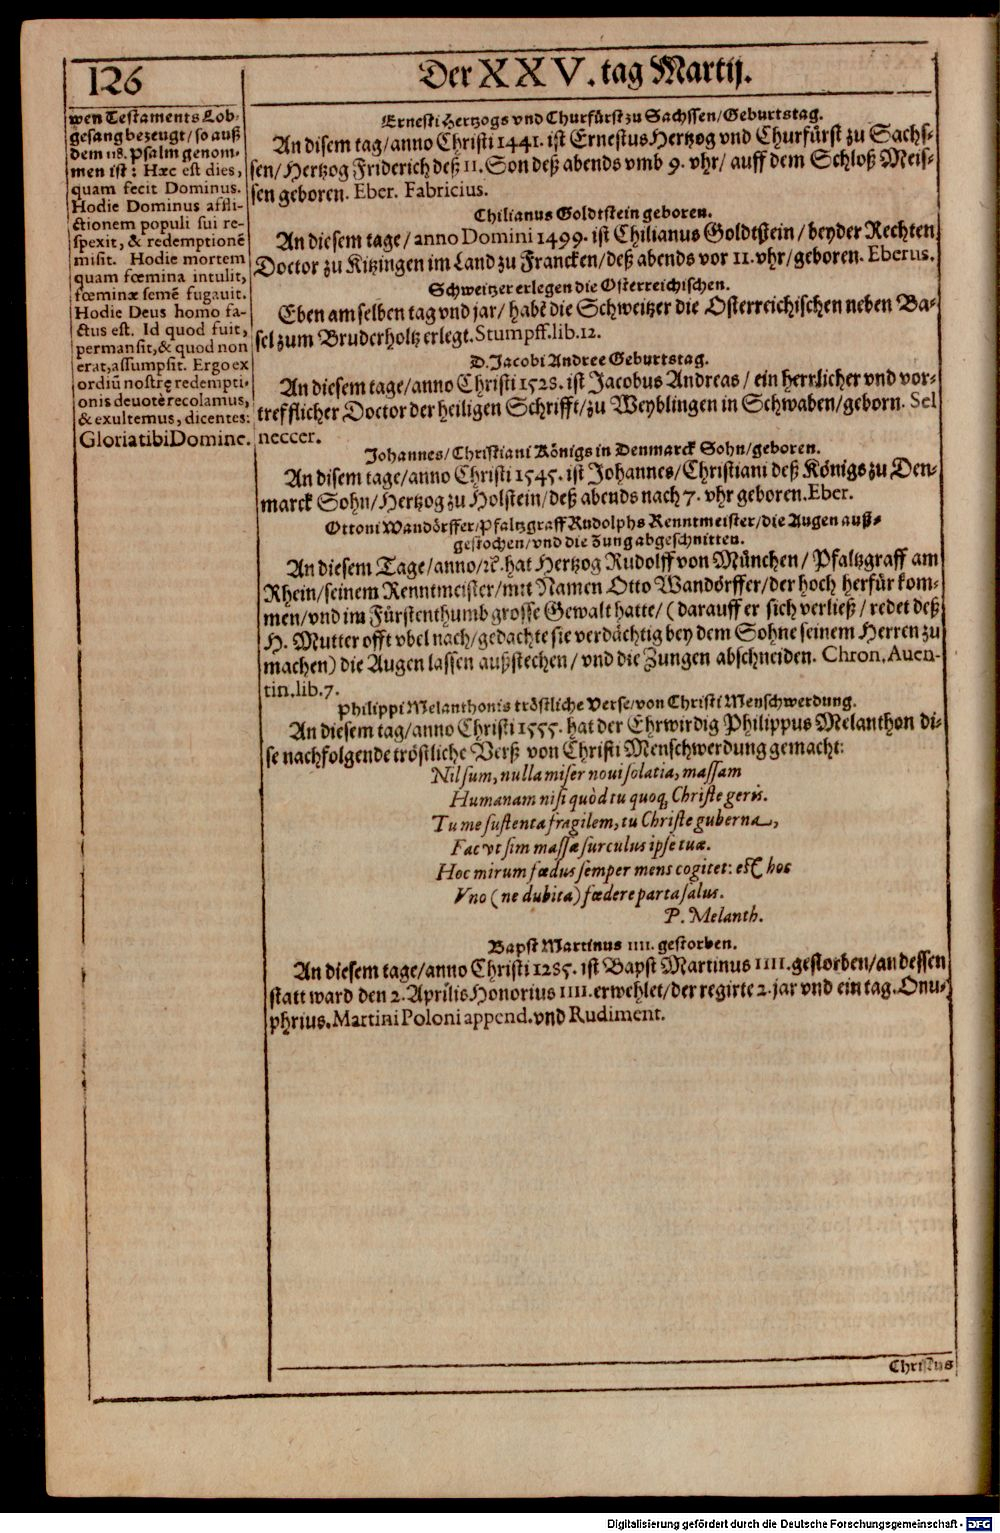 126
Der XXV. tag Martij.
wen Testaments Lob-
gesang bezeugt/ so auß
dem 118. Psalm genom-
men ist: Hæc est dies,
quam fecit Dominus.
Hodie Dominus affli-
ctionem populi sui re-
spexit, & redemptionē
misit. Hodie mortem
quam fœmina intulit,
fœminæ semē fugauit.
Hodie Deus homo fa-
ctus est. Id quod fuit,
permansit, & quod non
erat, assumpsit. Ergo ex
ordiū nostrę redempti-
onis deuotè recolamus,
& exultemus, dicentes:
Gloria tibi Domine.
Ernesti Hertzogs vnd Churfürst zu Sachssen/ Geburtstag.
An disem tag/ anno Christi 1441. ist Ernestus Hertzog vnd Churfürst zu Sachs-
sen/ Hertzog Friderich deß II. Son deß abends vmb 9. vhr/ auff dem Schloß Meis-
sen geboren. Eber. Fabricius.
Chilianus Goldtstein geboren.
An diesem tage/ anno Domini 1499. ist Chilianus Goldtstein/ beyder Rechten
Doctor zu Kitzingen im Land zu Francken/ deß abends vor 11. vhr/ geboren. Eberus.
Schweitzer erlegen die Osterreichischen.
Eben am selben tag vnd jar/ habē die Schweitzer die Osterreichischen neben Ba-
sel zum Bruderholtz erlegt. Stumpff. lib. 12.
D. Jacobi Andree Geburtstag.
An diesem tage/ anno Christi 1528. ist Jacobus Andreas/ ein herrlicher vnd vor-
trefflicher Doctor der heiligen Schrifft/ zu Weyblingen in Schwaben/ geborn. Sel
neccer.
Johannes/ Christiani Königs in Denmarck Sohn/ geboren.
An disem tage/ anno Christi 1545. ist Johannes/ Christiani deß Königs zu Den-
marck Sohn/ Hertzog zu Holstein/ deß abends nach 7. vhr geboren. Eber.
Ottoni Wandörffer/ Pfaltzgraff Rudolphs Renntmeister/ die Augen auß-
gestochen/ vnd die Zung abgeschnitten.
An diesem Tage/ anno/ ꝛc. hat Hertzog Rudolff von München/ Pfaltzgraff am
Rhein/ seinem Renntmeister/ mit Namen Otto Wandörffer/ der hoch herfür kom-
men/ vnd im Fürstenthumb grosse Gewalt hatte/ (darauff er sich verließ/ redet deß
H. Mutter offt vbel nach/ gedachte sie verdächtig bey dem Sohne seinem Herren zu
machen) die Augen lassen außstechen/ vnd die Zungen abschneiden. Chron. Auen-
tin. lib. 7.
Philippi Melanthonis tröstliche Verse/ von Christi Menschwerdung.
An diesem tag/ anno Christi 1555. hat der Ehrwirdig Philippus Melanthon di-
se nachfolgende tröstliche Verß von Christi Menschwerdung gemacht:
Nil sum, nulla miser noui solatia, massam
Humanam nisi quòd tu quoq, Christe geris.
Tu me sustenta fragilem, tu Christe guberna,
Fac vt sim massæ surculus ipse tuæ.
Hoc mirum fœdus semper mens cogitet: est hoc
Vno (ne dubita) fœdere parta salus.
P. Melanth.
Bapst Martinus IIII. gestorben.
An diesem tage/ anno Christi 1285. ist Bapst Martinus IIII. gestorben/ an dessen
statt ward den 2. Aprilis Honorius IIII. erwehlet/ der regirte 2. jar vnd ein tag. Onu-
phrius. Martini Poloni append. vnd Rudiment.
Christus
Digitalisierung gefördert durch die Deutsche Forschungsgemeinschaft - DFG